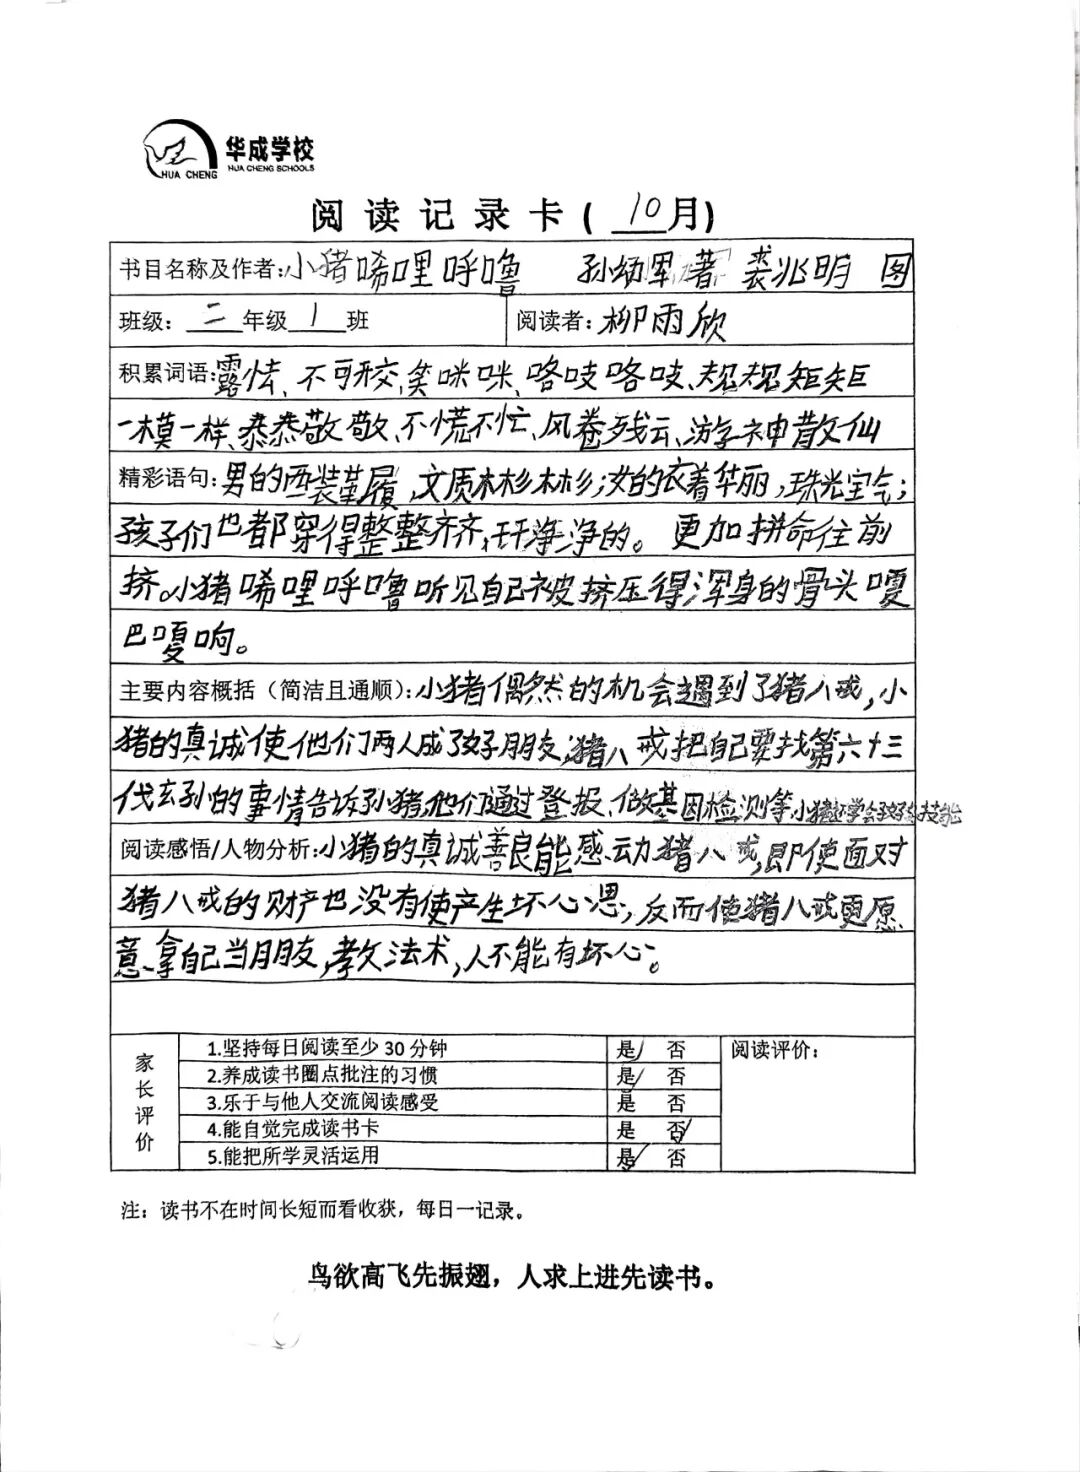 华成学校
HUA CHENG SCHOOLS
HUA CHENG
阅读记录卡(10月)
书目名称及作者:小猪唏哩呼噜 孙幼军著 裘兆明 图
班级:二年级1班 阅读者:柳雨欣
积累词语:露怯、不可开交、笑咪咪、咯吱咯吱、规规矩矩
一模一样、恭恭敬敬、不慌不忙、风卷残云、游学神散仙
精彩语句:男的西装革履,文质彬彬;女的衣着华丽,珠光宝气;
孩子们也都穿得整整齐齐,干干净净的。更加拼命往前
挤。小猪唏哩呼噜听见自己被挤压得浑身的骨头嘎
巴嘎响。
主要内容概括(简洁且通顺):小猪偶然的机会遇到了猪八戒,小
猪的真诚使他们两人成了好朋友,猪八戒把自己要找第六十三
代玄孙的事情告诉小猪,他们通过登报、做基因检测等,小猪还学会好多技能
阅读感悟/人物分析:小猪的真诚善良能感动猪八戒,即使面对
猪八戒的财产也没有使产生坏心思,反而使猪八戒更愿
意拿自己当朋友,教父法术,人不能有坏心。
家长评价
1.坚持每日阅读至少30分钟 是 否
2.养成读书圈点批注的习惯 是 否
3.乐于与他人交流阅读感受 是 否
4.能自觉完成读书卡 是 否
5.能把所学灵活运用 是 否
阅读评价:
注:读书不在时间长短而看收获,每日一记录。
鸟欲高飞先振翅,人求上进先读书。